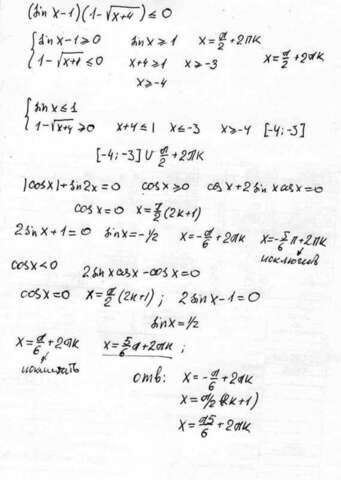 (sin x-1)(1-√x+4) ≤ 0
{ sin x-1 ≥ 0 sin x ≥ 1 x = π/2 + 2πk
1-√x+4 ≤ 0 x+4 ≥ 1 x ≥ -3 x = π/2 + 2πk
x ≥ -4
{ sin x ≤ 1
1-√x+4 ≥ 0 x+4 ≤ 1 x ≤ -3 x ≥ -4 [-4;-3]
[-4;-3] ∪ π/2 + 2πk
|cos x| + sin 2x = 0 cos x ≥ 0 cos x + 2 sin x cos x = 0
cos x = 0 x = π/2 (2k+1)
2 sin x + 1 = 0 sin x = -1/2 x = -π/6 + 2πk x = -5/6 π + 2πk
исключаем
cos x < 0 2 sin x cos x - cos x = 0
cos x = 0 x = π/2 (2k+1); 2 sin x - 1 = 0
sin x = 1/2
x = π/6 + 2πk x = 5/6 π + 2πk;
исключить
отв: x = -π/6 + 2πk
x = π/2 (2k+1)
x = π5/6 + 2πk